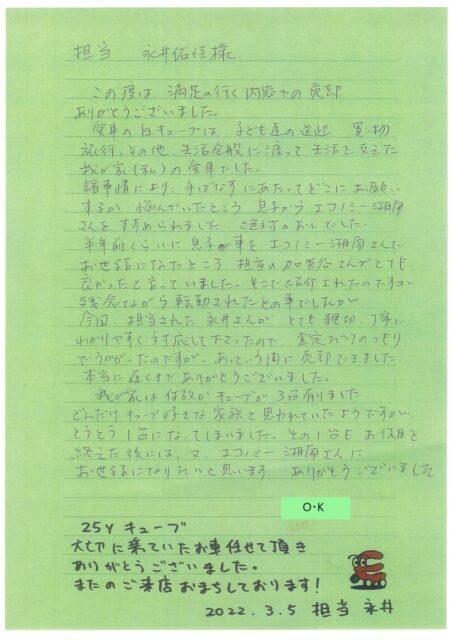 担当 永井佑佳様
この度は、満足の行く内容での売却
ありがとうございました。
愛車の白キューブは、子ども達の送迎、買い物
旅行、その他、生活全般に渡って生活を支えた
我が家(私)の愛車でした。
諸事情により、手ばなすにあたってどこにお願い
するか、悩んでいたところ 息子からエコノミー湘南
さんをすすめられました。絶対のおしでした。
半年前くらいに息子が車をエコノミー湘南さんで
お世話になったところ 担当の加賀谷さんがとても
良かったと言っていました。そこで紹介されたのですが
残念ながら転勤されたとの事でしたが、
今回、担当された永井さんが、とても親切、丁寧で
わかりやすく対応して下さったので、査定だけのつもり
でうかがったのですが、あっという間に売却できました。
本当に遅くまでありがとうございました。
我が家は何故かキューブが3台有りました。
どんだけキューブ好きな家族と思われていたようですが、
とうとう1台になってしまいました。その1台も、お役目を
終えた後には、又、エコノミー湘南さんに
お世話になりたいと思います ありがとうございました
O・K
25Y キューブ
大切に乗ていたお車任せて頂き
ありがとうございました。
またのご来店おまちしております!
2022.3.5 担当 永井